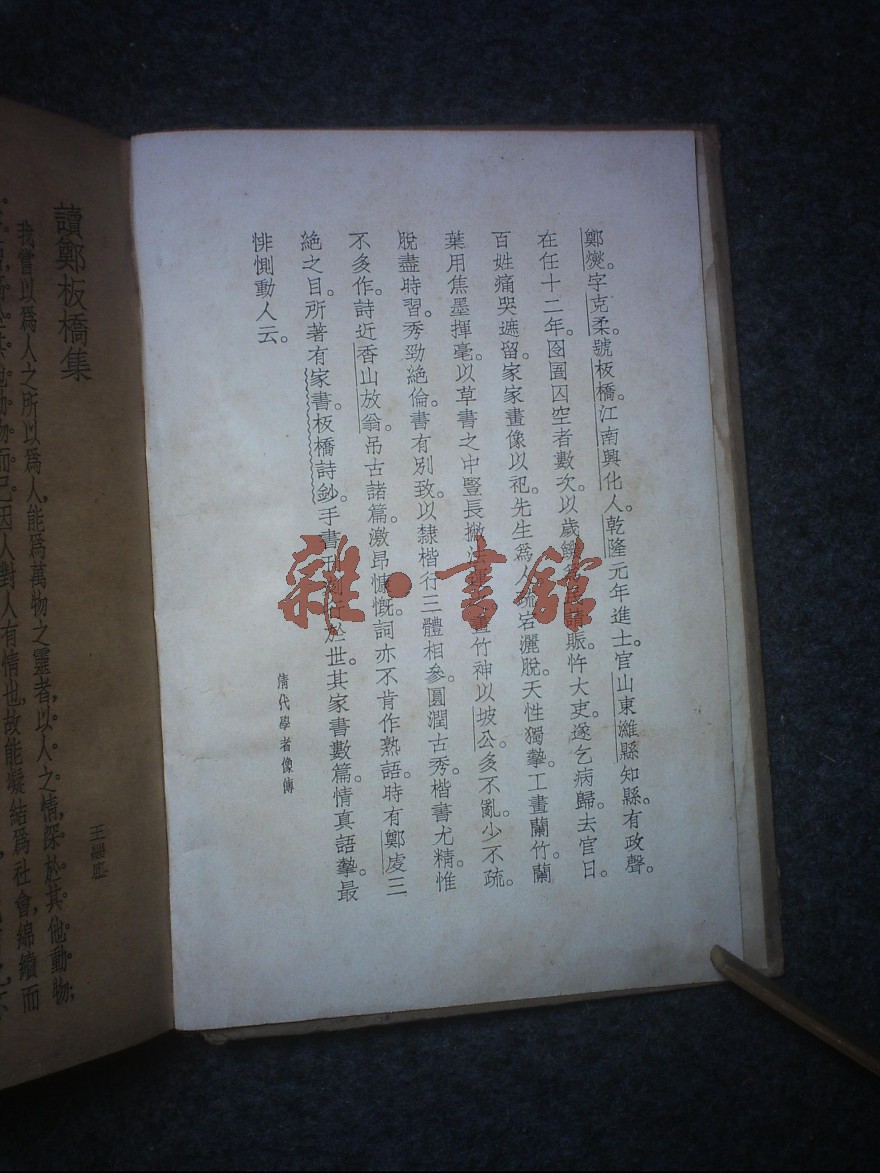 鄭燮。字克柔。號板橋。江南興化人。乾隆元年進士。官山東濰縣知縣。有政聲。
在任十二年。囹圄囚空者數次。以歲饑 賑。忤大吏。遂乞病歸。去官日。
百姓痛哭遮留。家家畫像以祀。先生爲人疏宕灑脫。天性獨摯。工畫蘭竹。蘭
葉用焦墨揮毫。以草書之中豎長撇法 畫竹神以坡公。多不亂。少不疏。
脫盡時習。秀勁絕倫。書有別致。以隸楷行三體相參。圓潤古秀。楷書尤精。惟
不多作。詩近香山放翁。吊古諸篇。激昂慷慨。詞亦不肯作熟語。時有鄭虔三
絕之目。所著有家書板橋詩鈔。手書刊 於世。其家書數篇。情真語摯。最
悱惻動人云。
清代學者像傳
雜·書館
讀鄭板橋集
王緇塵
我嘗以爲人之所以爲人,能爲萬物之靈者,以人之情,深於其他動物;
而已。因人對人有情也,故能凝結爲社會,綿續而